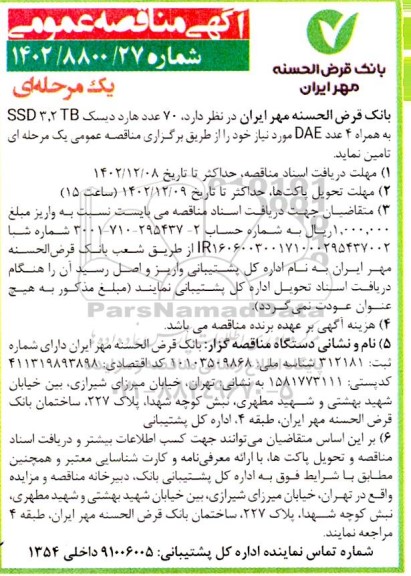 آگهی مناقصه عمومی
شماره ۱۴۰۲/۸۸۰۰/۲۷
یک مرحله‌ای
بانک قرض الحسنه
مهر ایران
بانک قرض الحسنه مهر ایران در نظر دارد، ۷۰ عدد هارد دیسک SSD ۳.۲ TB
به همراه ۴ عدد DAE مورد نیاز خود را از طریق برگزاری مناقصه عمومی یک مرحله ای
تامین نماید.
۱) مهلت دریافت اسناد مناقصه، حداکثر تا تاریخ ۱۴۰۲/۱۲/۰۸
۲) مهلت تحویل پاکت‌ها، حداکثر تا تاریخ ۱۴۰۲/۱۲/۰۹ (ساعت ۱۵)
۳) متقاضیان جهت دریافت اسناد مناقصه می بایست نسبت به واریز مبلغ
۱,۰۰۰,۰۰۰ریال به شماره حساب ۲-۲۹۵۴۳۷-۷۱۰-۳۰۰۱ شماره شبا
IR۱۶۰۶۰۰۳۰۰۱۷۱۰۰۰۲۹۵۴۳۷۰۰۲ از طریق شعب بانک قرض‌الحسنه
مهر ایران به نام اداره کل پشتیبانی واریز و اصل رسید آن را هنگام
دریافت اسناد تحویل اداره کل پشتیبانی نمایند (مبلغ مذکور به هیچ
عنوان عودت نمی‌گردد).
۴) هزینه آگهی بر عهده برنده مناقصه می باشد.
۵) نام و نشانی دستگاه مناقصه گزار: بانک قرض الحسنه مهر ایران دارای شماره
ثبت: ۳۱۲۱۸۱ شناسه ملی: ۱۰۱۰۳۵۰۹۸۶۸ کد اقتصادی: ۴۱۱۳۱۹۸۹۳۸۹۸
کدپستی: ۱۵۸۱۷۷۳۱۱۱ به نشانی: تهران، خیابان میرزای شیرازی، بین خیابان
شهید بهشتی و شهید مطهری، نبش کوچه شهدا، پلاک ۲۲۷، ساختمان بانک
قرض الحسنه مهر ایران، طبقه ۴، اداره کل پشتیبانی
۶) بر این اساس متقاضیان می‌توانند جهت کسب اطلاعات بیشتر و دریافت اسناد
مناقصه و تحویل پاکت ها، با ارائه معرفی‌نامه و کارت شناسایی معتبر و همچنین
مطابق با شرایط فوق به اداره کل پشتیبانی بانک، دبیرخانه مناقصه و مزایده
واقع در تهران، خیابان میرزای شیرازی، بین خیابان شهید بهشتی و شهید مطهری،
نبش کوچه شهدا، پلاک ۲۲۷، ساختمان بانک قرض الحسنه مهر ایران، طبقه ۴
مراجعه نمایند.
شماره تماس نماینده اداره کل پشتیبانی: ۹۱۰۰۶۰۰۵ داخلی ۱۳۵۴
ParsNamadData